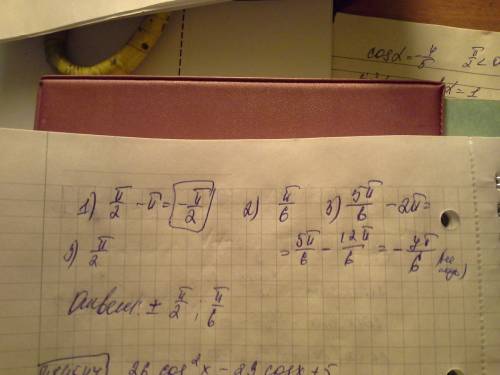 cosα = -4/5   π/2 <
α = 1
1) π/2 - π = -π/2   2) π/6   3) 5π/6 - 2π =
= 5π/6 - 12π/6 = -7π/6
3) π/2
Ответ: ± π/2 ; π/6
26 cos²x - 23 cosx + 5